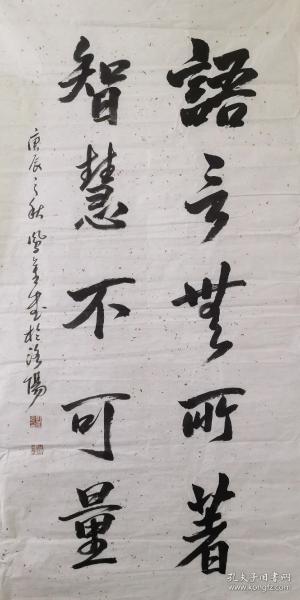 語言無所著
智慧不可量
庚辰之秋 書於洛陽
孔夫子旧书网
www.kongfz.com